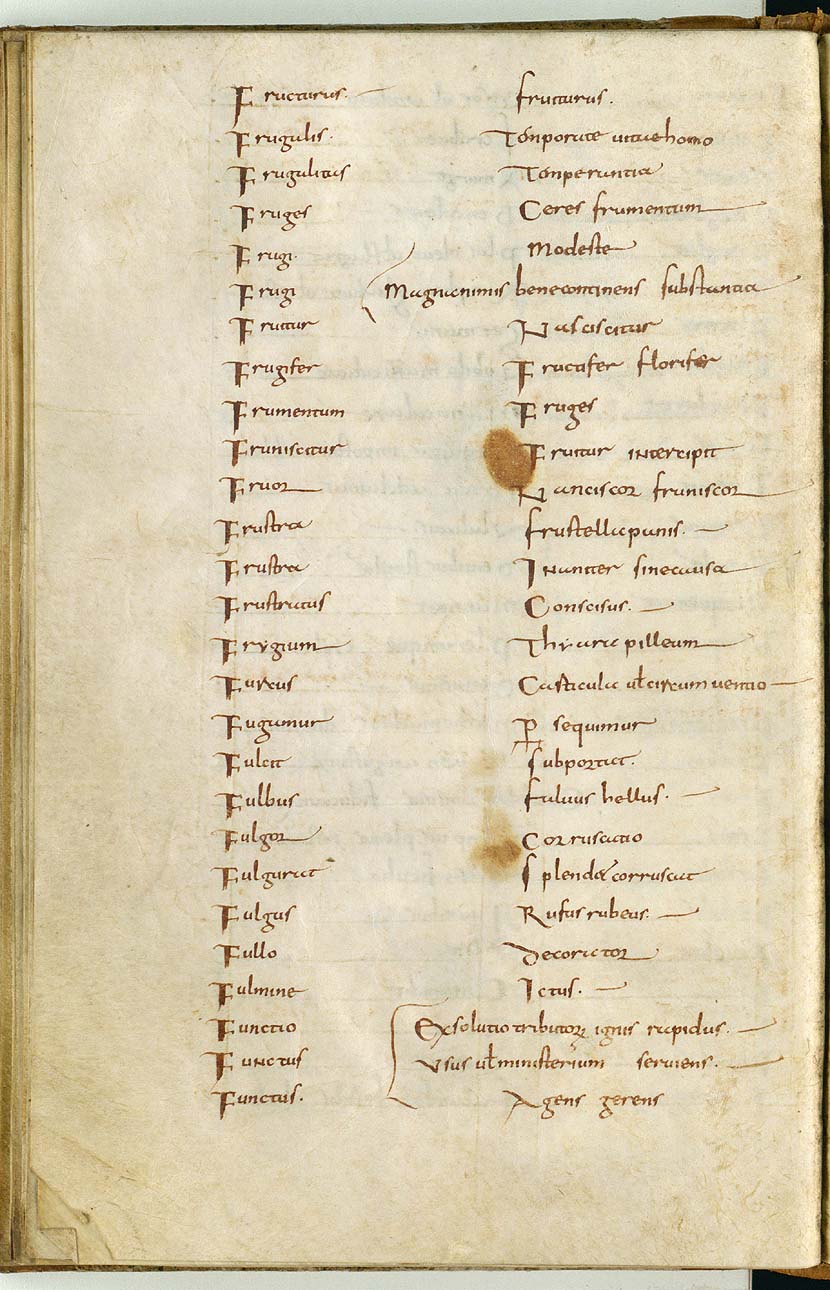 Fructurus. fructurus.
Frugalis. Tenperate uitae homo
Frugalitas Tenperantia
Fruges Ceres frumentum
Frugi. Modeste
Frugi Magnanimis bene continens substantia
Fruitur Nasciscitur
Frugifer Fructifer florifer
Frumentum Fruges
Fruniscitur Fruitur intercipit
Fruor Nanciscor fruniscor
Frustra frustella panis.
Frustra Inaniter sine causa
Frustratus Conscisus.
Frygium Thyara pilleam
Furcus Casticula ul circum uentio
Fugamur P̱ sequimur
Fulcit subportat.
Fulbus fuluus hellus.
Fulgor Corruscatio
Fulgurat Splendet corruscat
Fulgus Rufus rubeus.
Fullo Decoriator
Fulmine Ictus.
Functio Exsolutio tributorꝝ ignis rapidus.
Functus Usus ul ministerium seruiens.
Functus. Agens gerens